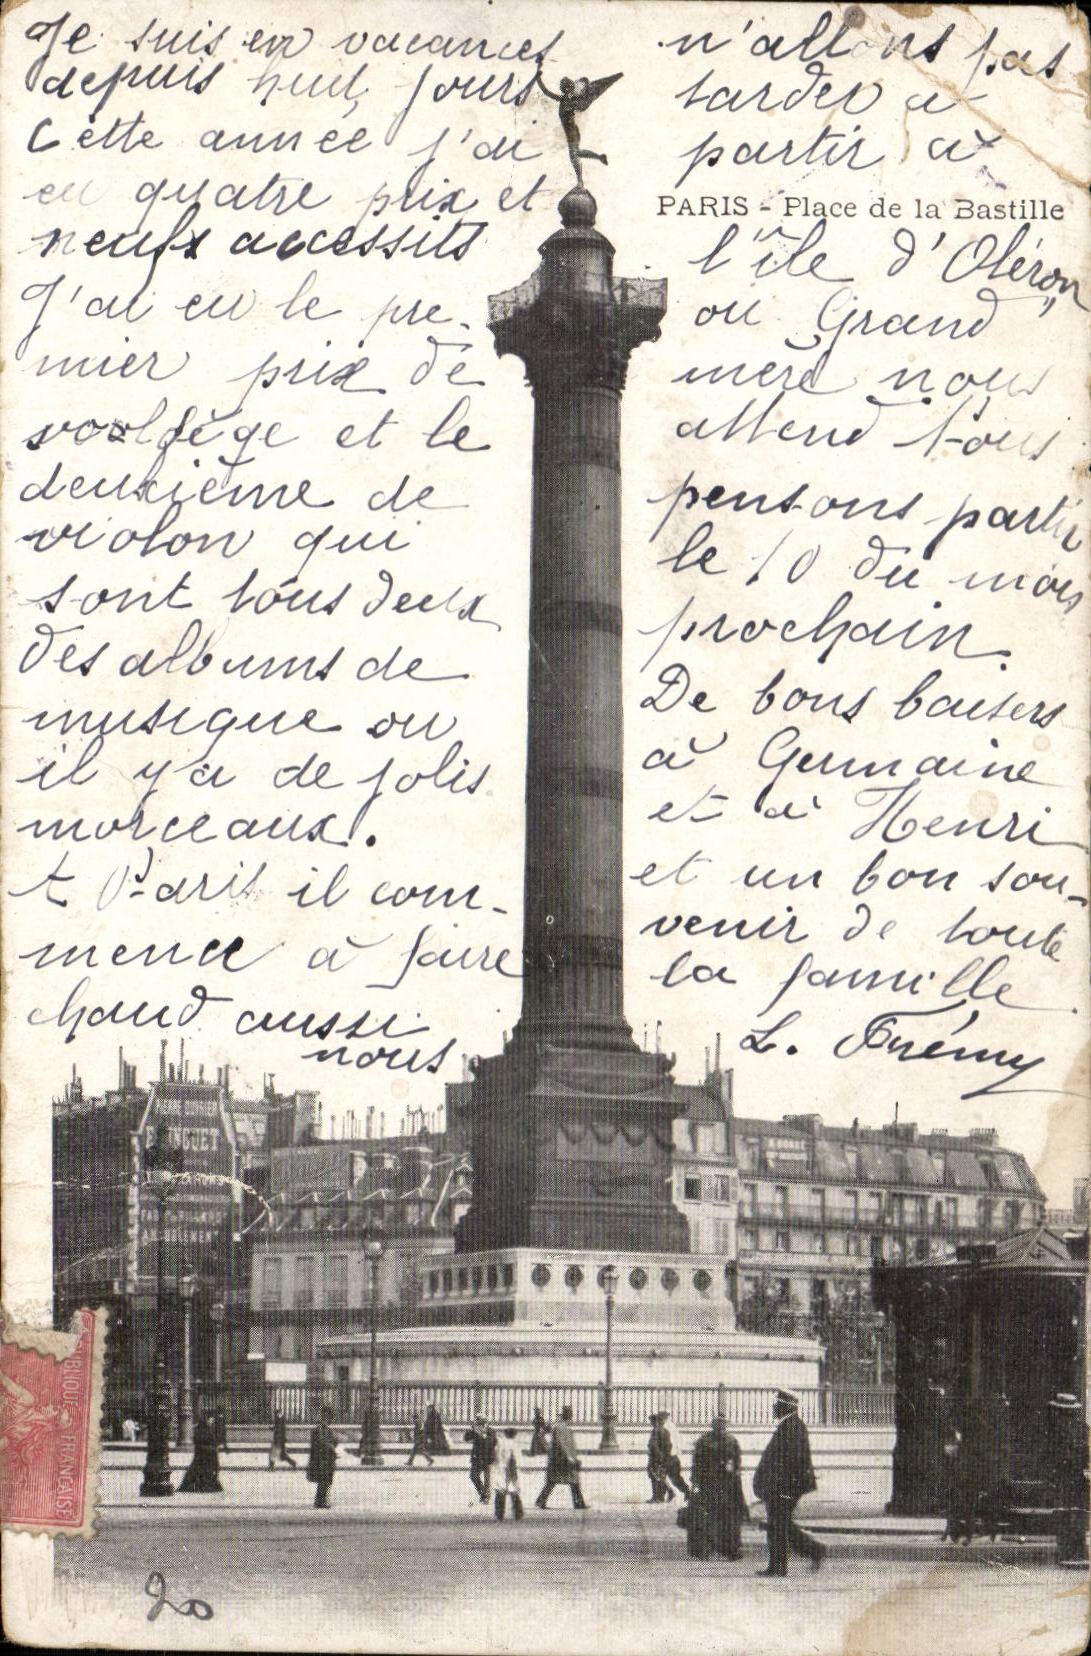 Je suis en vacances
depuis huit jours
Cette année j'ai
eu quatre prix et
neufs accessits
J'ai eu le pre-
mier prix de
soolfège et le
deuxième de
violon qui
sont tous deux
des albums de
musique ou
il y a de jolis
morceaux.
A Paris il com-
mence à faire
chaud aussi
nous
n'allons pas
tarder a
partir à
PARIS - Place de la Bastille
l'île d'Oléron
ou Grand
mère nous
attend. Nous
pensons partir
le 10 du mois
prochain.
De bons baisers
à Germaine
et à Henri
et un bon sou-
venir de toute
la famille
L. Frémy
FRANÇAISE
20